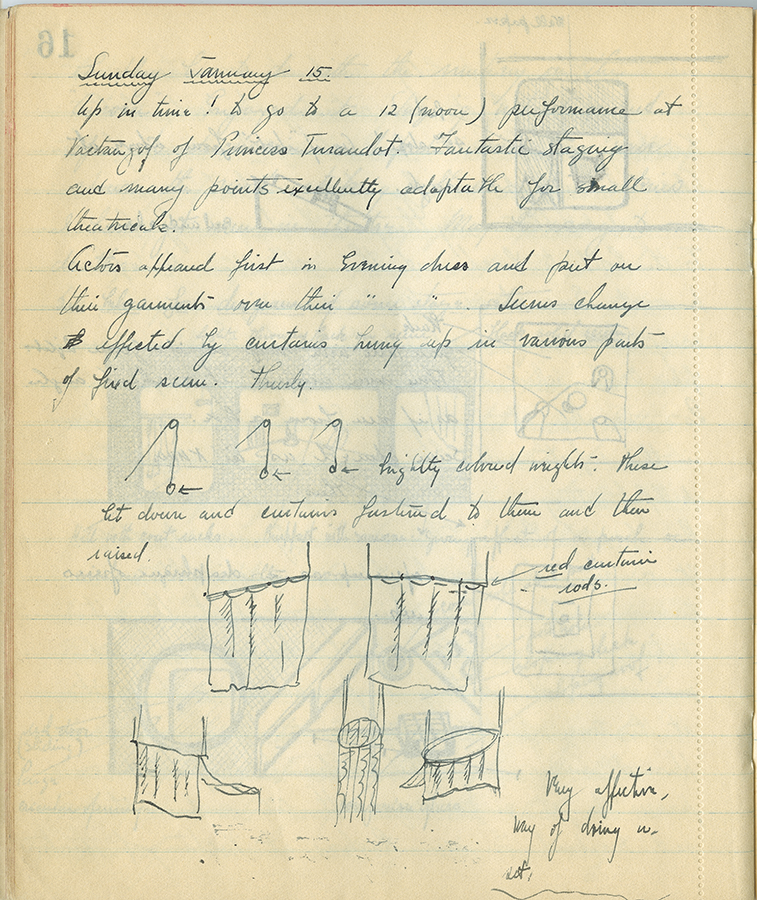 Sunday January 15.
Up in time! to go to a 12 (noon) performance at
Vactangof of Princess Turandot. Fantastic staging
and many points excellently adaptable for small
theatricals.
Actors appeared first in Evening dress and put on
their garments over their " ". Scenes change
effected by curtains hung up in various parts
of fixed scene. Thusly.
brightly colored weights. These
let down and curtains fastened to them and then
raised.
red curtain
rods.
Very effective,
way of doing
act.
16